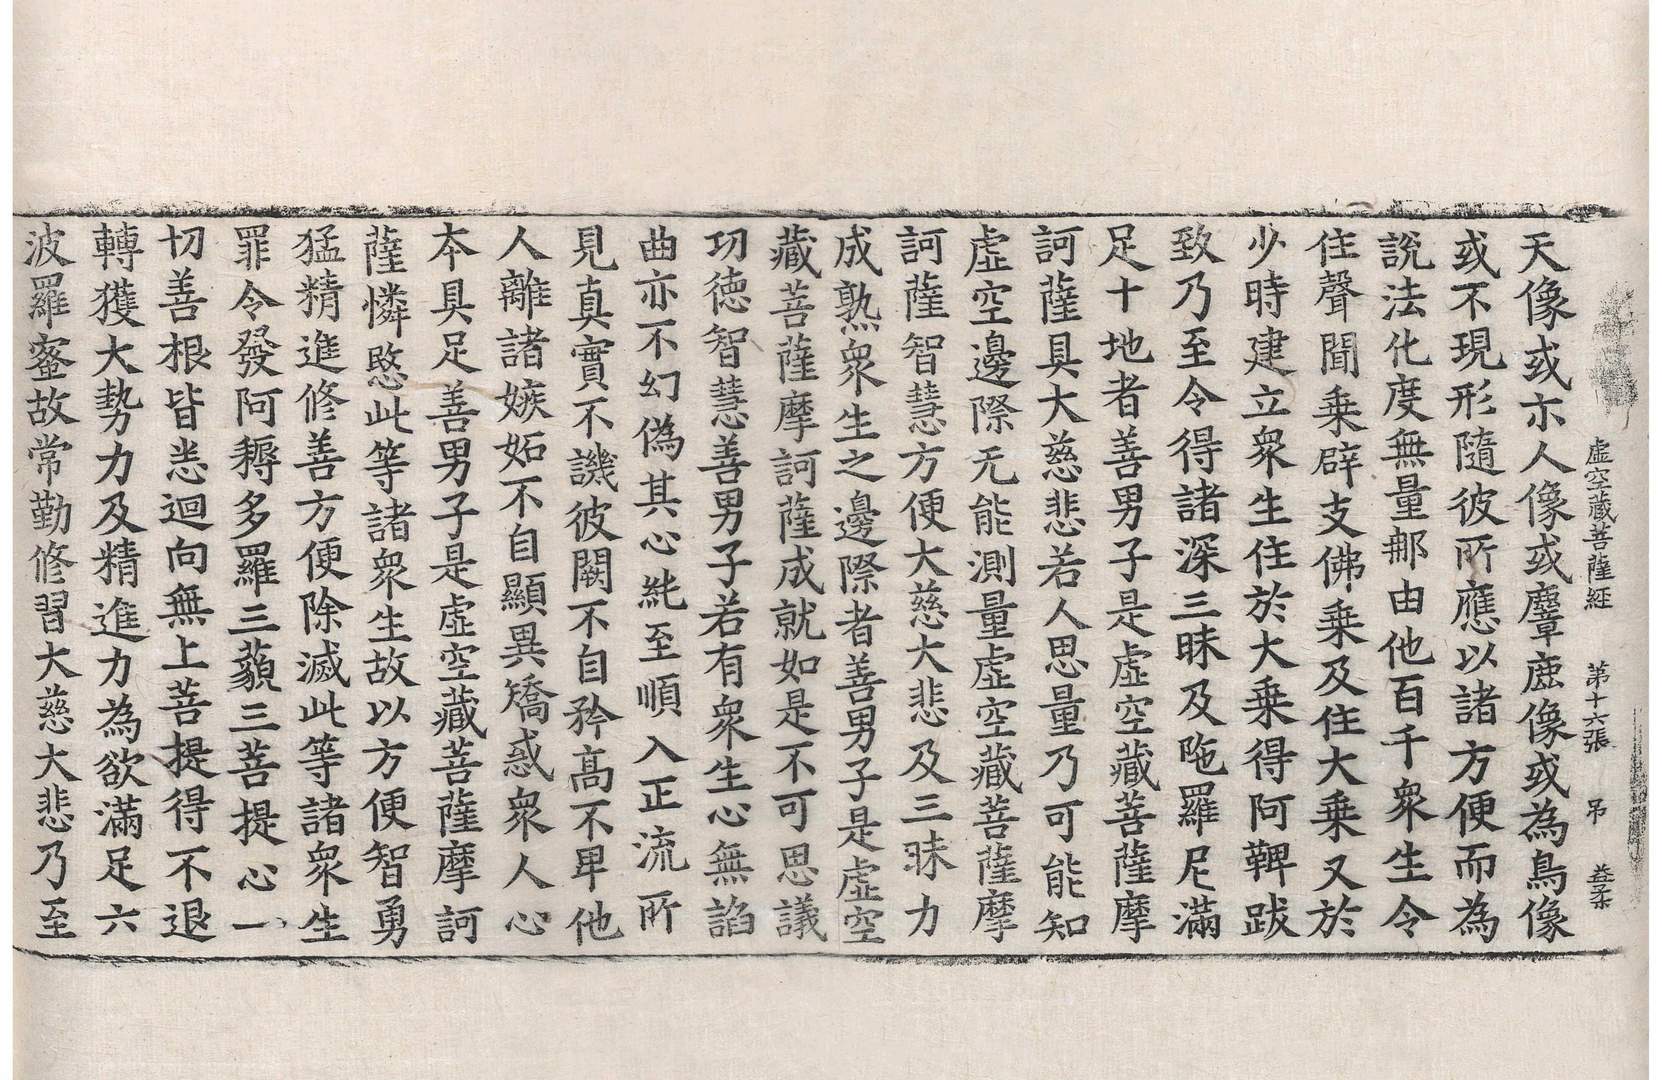 虛空藏菩薩經 第十六張 吊
天像或示人像或麞鹿像或為鳥像
或不現形隨彼所應以諸方便而為
說法化度無量那由他百千衆生令
住聲聞乗辟支佛乗及住大乗又於
少時建立衆生住於大乗得阿鞞跋
致乃至令得諸深三昧及陁羅尼滿
足十地者善男子是虛空藏菩薩摩
訶薩具大慈悲若人思量乃可能知
虛空邊際无能測量虛空藏菩薩摩
訶薩智慧方便大慈大悲及三昧力
成熟衆生之邊際者善男子是虛空
藏菩薩摩訶薩成就如是不可思議
功徳智慧善男子若有衆生心無諂
曲亦不幻偽其心純至順入正流所
見真實不譏彼闕不自矜高不卑他
人離諸嫉妬不自顯異矯惑衆人心
本具足善男子是虛空藏菩薩摩訶
薩憐愍此等諸衆生故以方便智勇
猛精進修善方便除滅此等諸衆生
罪令發阿耨多羅三藐三菩提心一
切善根皆悉迴向無上菩提得不退
轉獲大勢力及精進力為欲滿足六
波羅蜜故常勤修習大慈大悲乃至